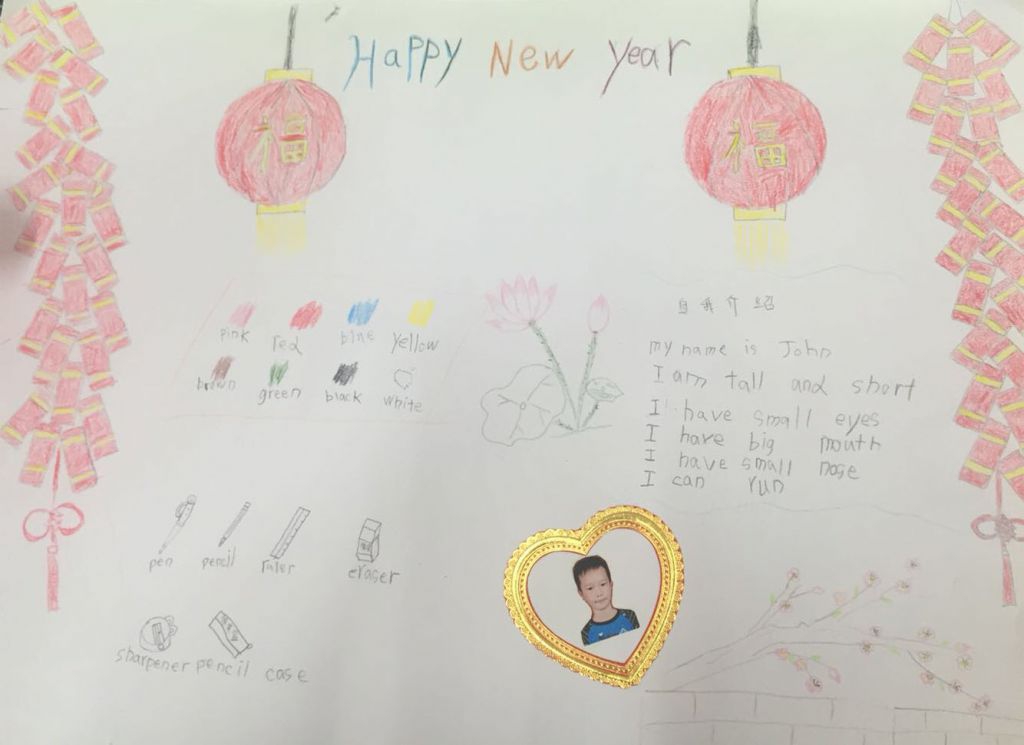 Happy New Year
福
福
pink red blue yellow
brown green black white
自我介绍
my name is John
I am tall and short
I have small eyes
I have big mouth
I have small nose
I can run
pen pencil ruler eraser
sharpener pencil case